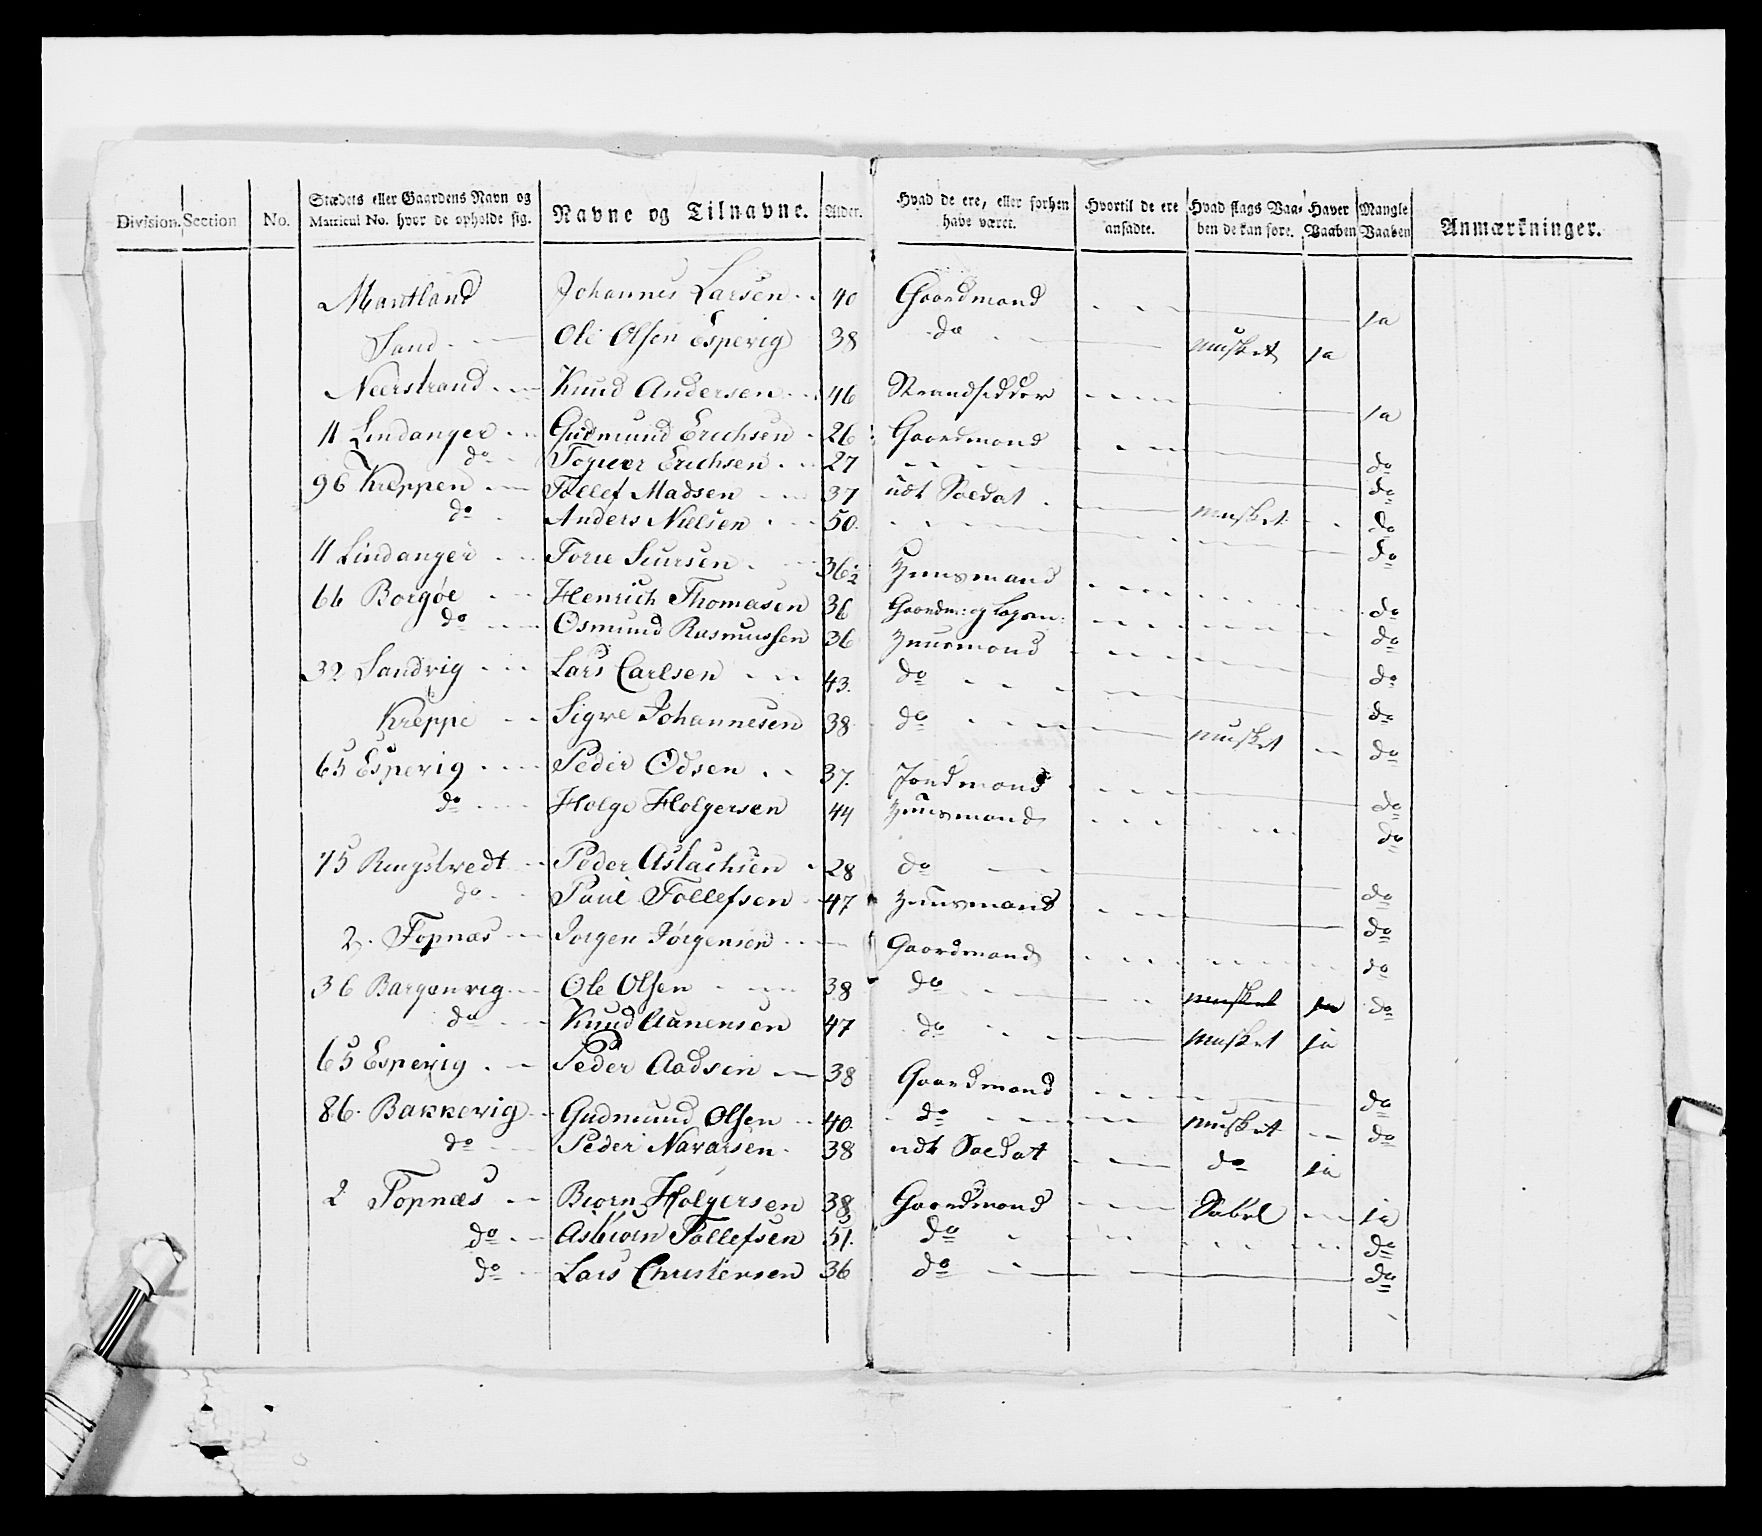 Division. Section No. Stædets eller Gaardens Navn og Matricul No. hvor de opholde sig. Navne og Tilnavne. Alder. Hvad de ere, eller forhen have været. Hvortil de ere ansadte. Hvad slags Vaaben de kan føre. Haver Vaaben Mangle Vaaben Anmærkninger.
Mantland Johannes Larsen 40 Gaardmand ja
Sand Ole Olsen Espevig 38 do musket ja
Neerstrand Knud Andersen 46 Strandsidder ja
11 Lindanger Gudmund Erichsen 26 Gaardmand do
do Torger Erichsen 27 do
96 Kreppen Tollef Madsen 37 udt Soldat musket do
do Anders Nielsen 50. do
11 Lindanger Tore Siursen 36½ Huusmand do
66 Borgøe Henrich Thomasen 36 Gaardm: og do
do Osmund Rasmussen 36 Huusmand do
32 Sandvig Lars Carlsen 43. do do
Kreppe Sigve Johannesen 38 do musket do
65 Espevig Peder Odsen 37. Jordmand do
do Holge Holgersen 44 Huusmand do
75 Ringstvedt Peder Aslachsen 28 do do
do Paul Tollefsen 47 Huusmand do
2. Topnæs Jorgen Jørgensen Gaardmand do
36 Bargenvig Ole Olsen 38 do musket ja do
do Knud Aanensen 47 do musket ja
65 Espevig Peder Aadsen 38 Gaardmand do
86. Bakkevig Gudmund Olsen 40. do musket do
do Peder Navarsen 38 udt Soldat do ja
2 Topnæs Biørn Holgersen 38 Gaardmand Sabel ja
do Asbiørn Tollefsen 51. do do
do Lars Christensen 36 do do